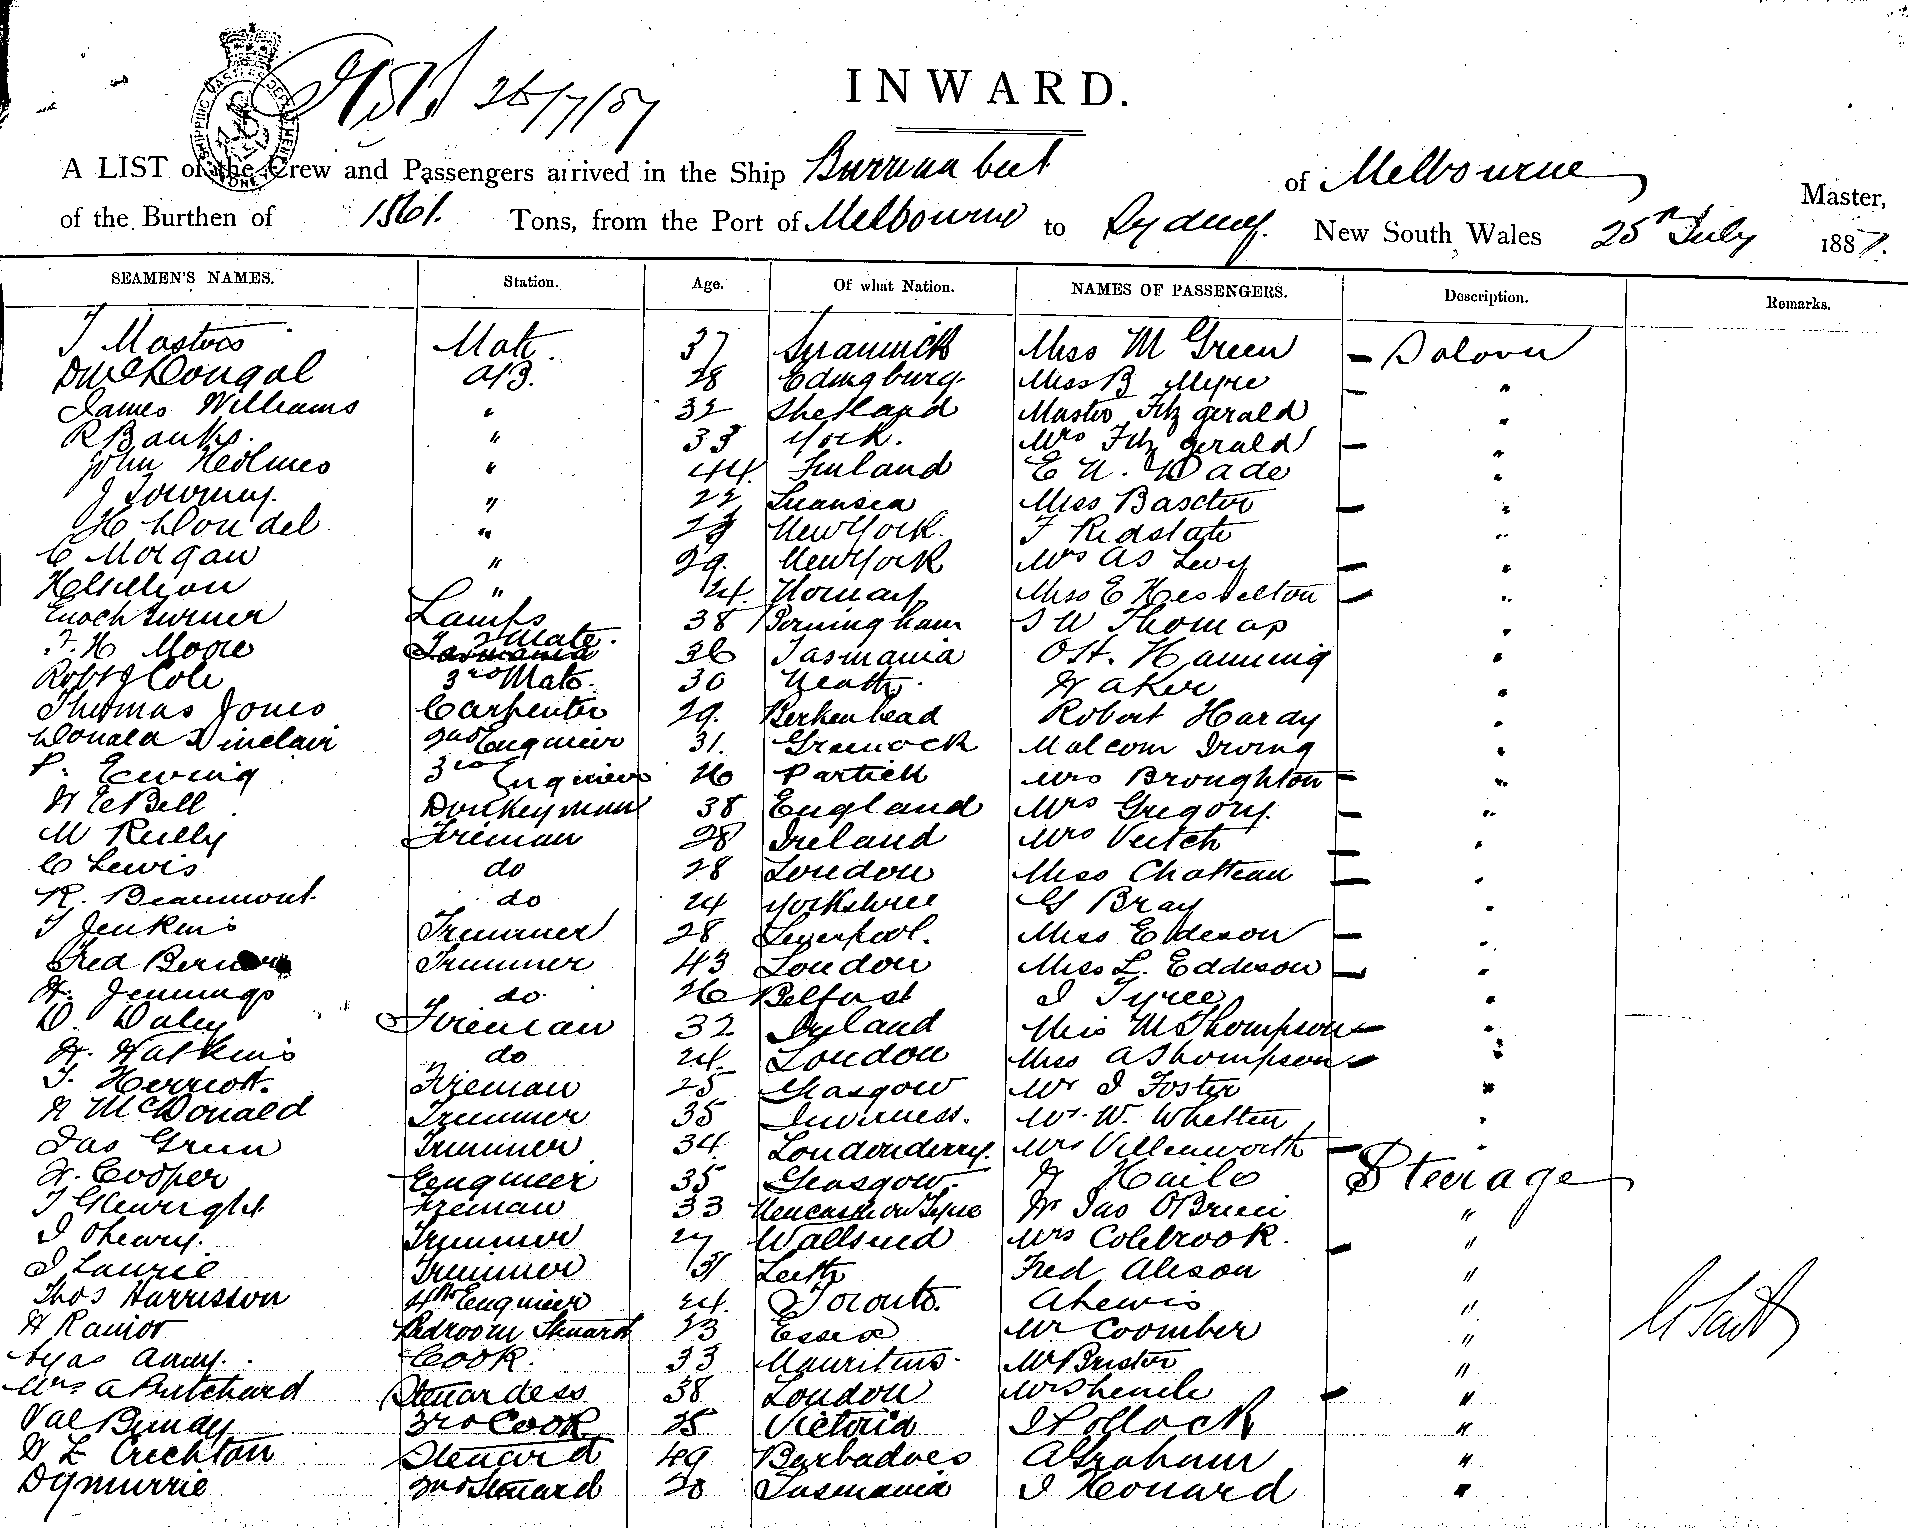 26/7/87
INWARD.
A LIST of the Crew and Passengers arrived in the Ship Burrumbeet of Melbourne Master,
of the Burthen of 1561. Tons, from the Port of Melbourne to Sydney. New South Wales 25th July 1887.
SEAMEN'S NAMES. Station. Age. Of what Nation. NAMES OF PASSENGERS. Description. Remarks.
Mate. 37 Miss M Green - Saloon
McDougal AB. 28 Edingburg. Miss B Myre "
James Williams " 32 Shetland Master Fitzgerald "
R Banks. " 33 York. Mrs Fitzgerald "
John Hedlines " 44. Finland E U. Wade "
" 22 Swansea Miss Baxter "
H Dondel " 23 New York. F Ridstate "
C Morgan " 29. New York Mrs AS Levy "
" 24. Norway Miss E Hesselton "
Enoch Turner Lamps 38 Borningham S W Thomas "
F. H Moore 2 Mate. 36 Tasmania Ost. Hamming "
Robt J Cole 3rd Mate. 30 Neath. W aker "
Thomas Jones Carpenter 29. Berkenhead Robert Hardy "
Donald Sinclair 2nd Engineer 31. Greenock Malcom Irving "
P. Ewing 3rd Engineer 26 Partick Mrs Broughton "
W E Bell Donkeyman 38 England Mrs Gregory. "
M Reilly Fireman 28 Ireland Mrs Veitch "
C Lewis do 28 London Miss Chatteau "
R. Beaumont do 24 Yorkshire G Bray "
T Jenkins Trimmer 28 Liverpool. Miss Eddeson "
Fred Trimmer 43 London Miss L. Eddeson "
W. Jennings do 26 Belfast J Tyree "
D. Daley Fireman 32 Iyland Miss M Thompson "
W. Watkins do 24. London Miss A Thompson "
T. Herriott. Fireman 25 Glasgow Mr J Foster "
W McDonald Trimmer 35 Inverness. Mr. W. Whetten "
Jas Green Trimmer 34. Londonderry. Mrs Villenworth "
W. Cooper Engineer 35 Glasgow. W Hailo Steerage
T Fireman 33 Newcastle on Tyne W Jas OBrien "
J Ohenry. Trimmer 27 Wallsend Mrs Colebrook. "
J Laurie Trimmer 31 Leith Fred Alison "
Thos Harrisson 4th Engineer 24. Toronto. A Lewis "
W Rainor Bedroom Steward 23 Essex Mr Coomber "
Cook. 33 Mauritius. Mr Brister "
Mrs A Pritchard Stewardess 38 London "
Val Bundy 3rd Cook 25 Victoria J Pollock "
W L Crichton Steward 49 Barbadoes A Graham "
D Gymurrie 2nd Steward 28 Tasmania J Howard "